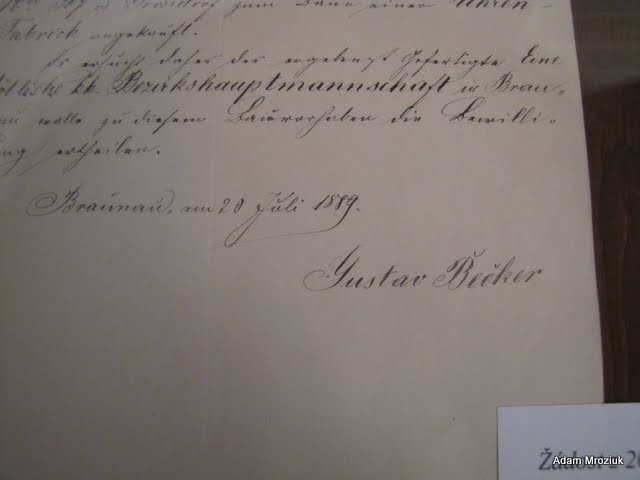 zum Baue einer Uhren-
Fabrick angekauft.
Es ersucht daher der ergebenst Gefertigte Eine
löbliche kk. Bezirkshauptmannschaft in Brau-
nau wolle zu diesem Bauvorhaben die Bewilli-
gung ertheilen.
Braunau, am 20 Juli 1889.
Gustav Becker
Žádost z 20
Adam Mroziuk